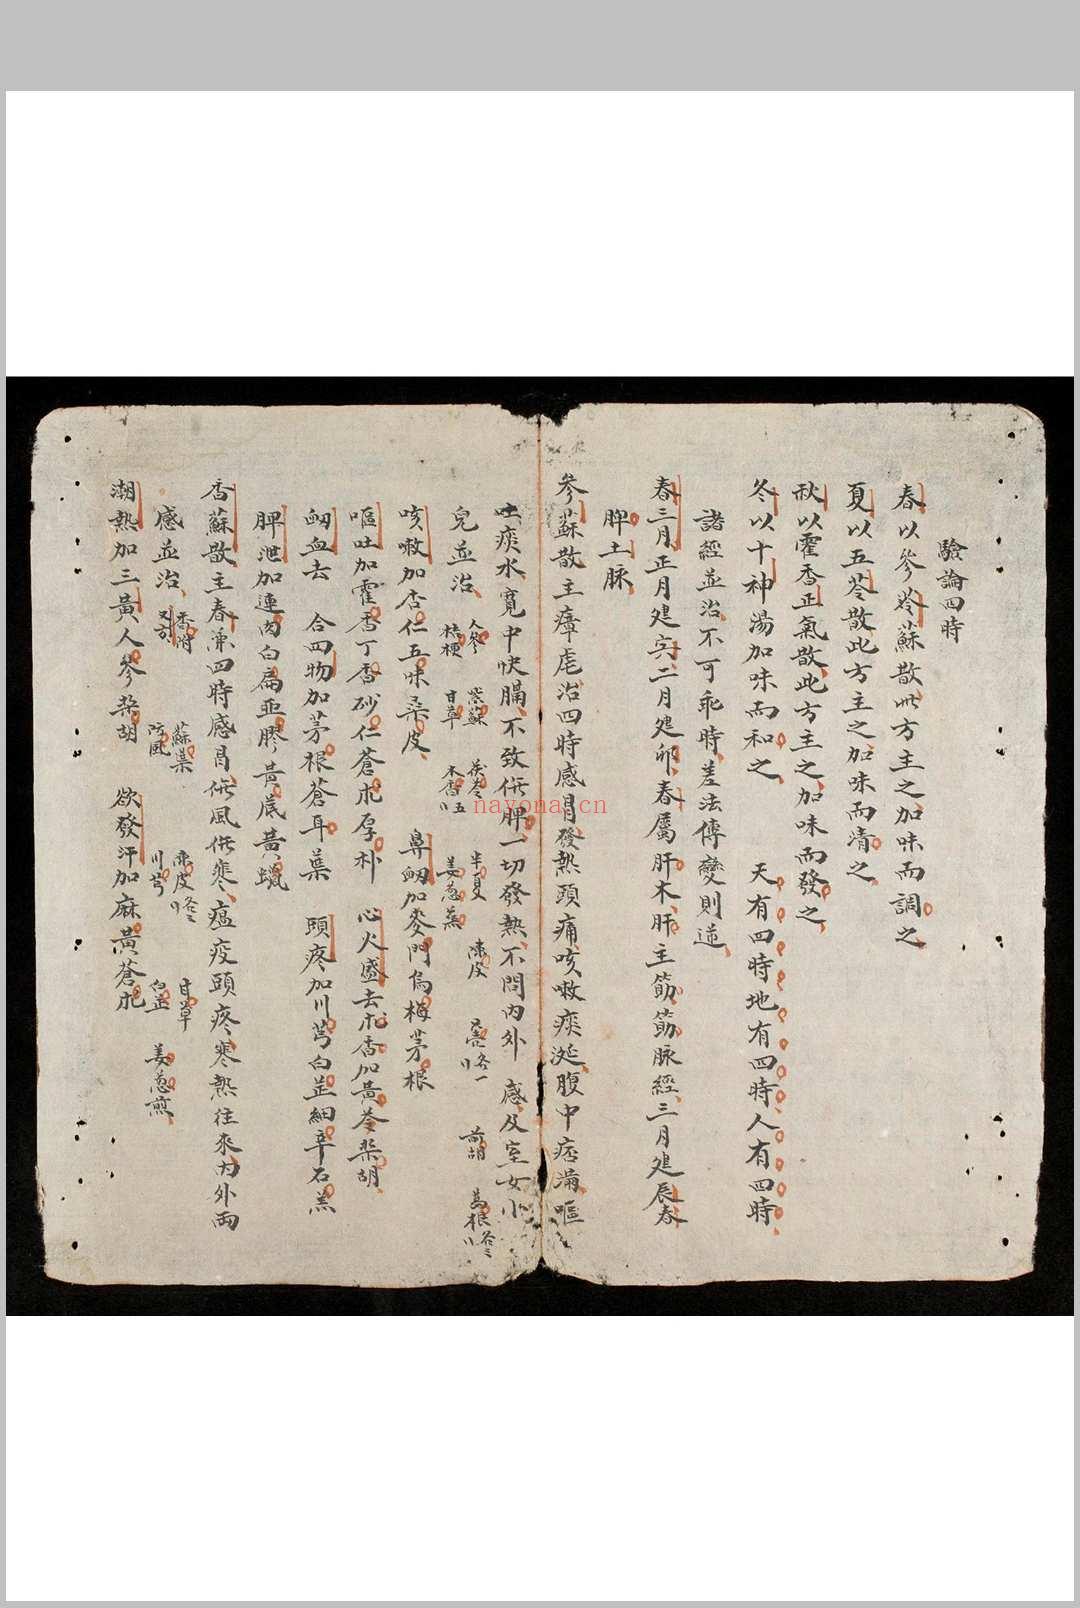 驗論四時
春以參苓蘇散此方主之加味而調之
夏以五苓散此方主之加味而清之
秋以霍香正氣散此方主之加味而發之
冬以十神湯加味而和之 天有四時地有四時人有四時
諸經並治不可乖時差法傳變則逆
春三月正月建寅二月建卯春屬肝木肝主筋筋脉經三月建辰春
脾土脉
參蘇散主瘴瘧治四時感冒發熱頭痛咳嗽痰涎腹中痞滿嘔
吐痰水寬中快膈不致傷脾一切發熱不問內外 感及室女小
兒並治
人參 紫蘇 茯苓 半夏 陳皮 各一 前胡 葛根各三
桔梗 甘草 木香五 姜葱煎
咳嗽加杏仁五味桑皮 鼻衄加麥門烏梅茅根
嘔吐加霍香丁香砂仁蒼朮厚朴 心火盛去木香加黃芩柴胡
衄血去 合四物加茅根蒼耳葉 頭疼加川芎白芷細辛石羔
脾泄加連肉白扁亜膠黃蠟
香蘇散主春兼四時感冒傷風傷寒瘟疫頭疼寒熱往來內外兩
感並治
香附 蘇葉 陳皮各三 甘草
又方 防風 川芎 白芷 姜葱煎
潮熱加三黃人參柴胡 欲發汗加麻黃蒼朮
nayona.cn